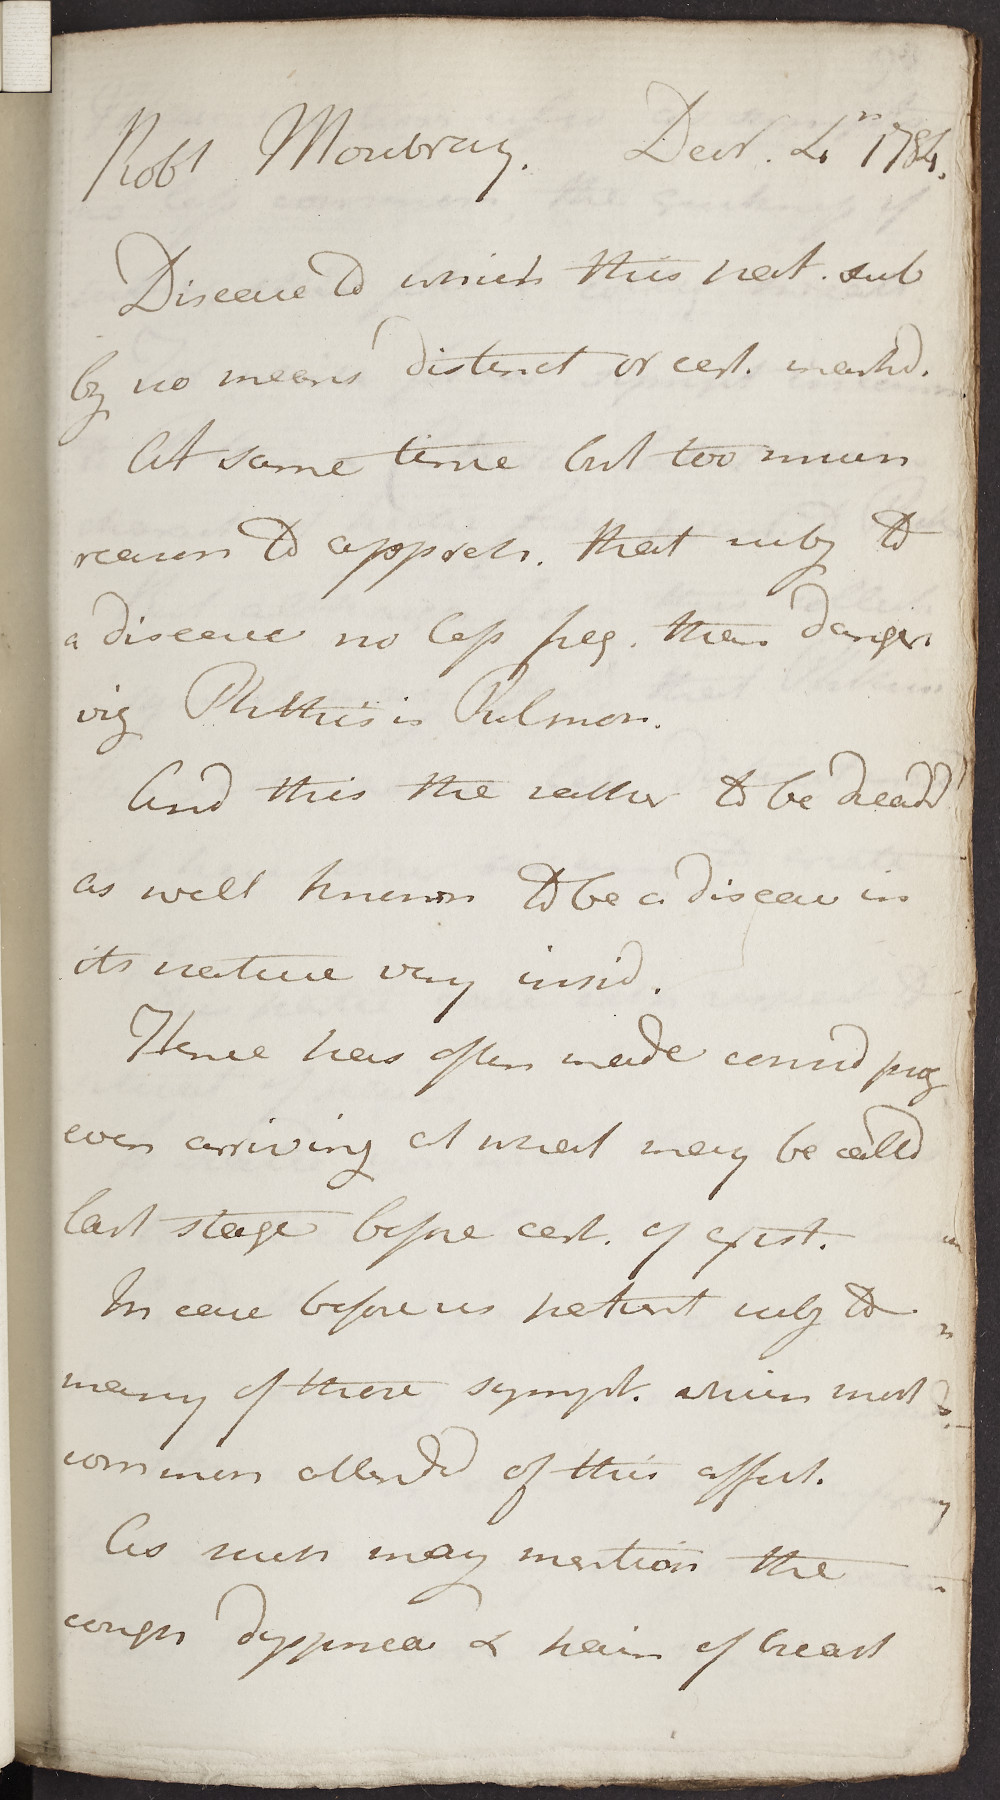 Robt Moubray. Decr. 4th 1784.
Disease to which this pat. sub
by no means distinct or cert. markd.
At same time but too much
reason to appreh. that subj to
a disease no less freq. than danger.
viz Phthisis Pulmon.
And this the rather to be dreadd
as well known to be a disease in
its nature very insid.
Hence has often made considb prog
even arriving at what may be calld
last stage before cert. of exist.
In case before us patient subj to
many of those sympt. which most
common attendd of this affect.
As such may mention the
cough dyspnea & pain of breast